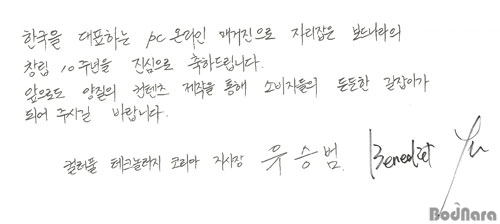 한국을 대표하는 pc 온라인 매거진으로 자리잡은 보드나라의
창립 10주년을 진심으로 축하드립니다.
앞으로도 양질의 컨텐츠 제작을 통해 소비자들의 든든한 길잡이가
되어 주시길 바랍니다.
컬러풀 테크놀러지 코리아 지사장 유승범 Benedict Yu
BodNara